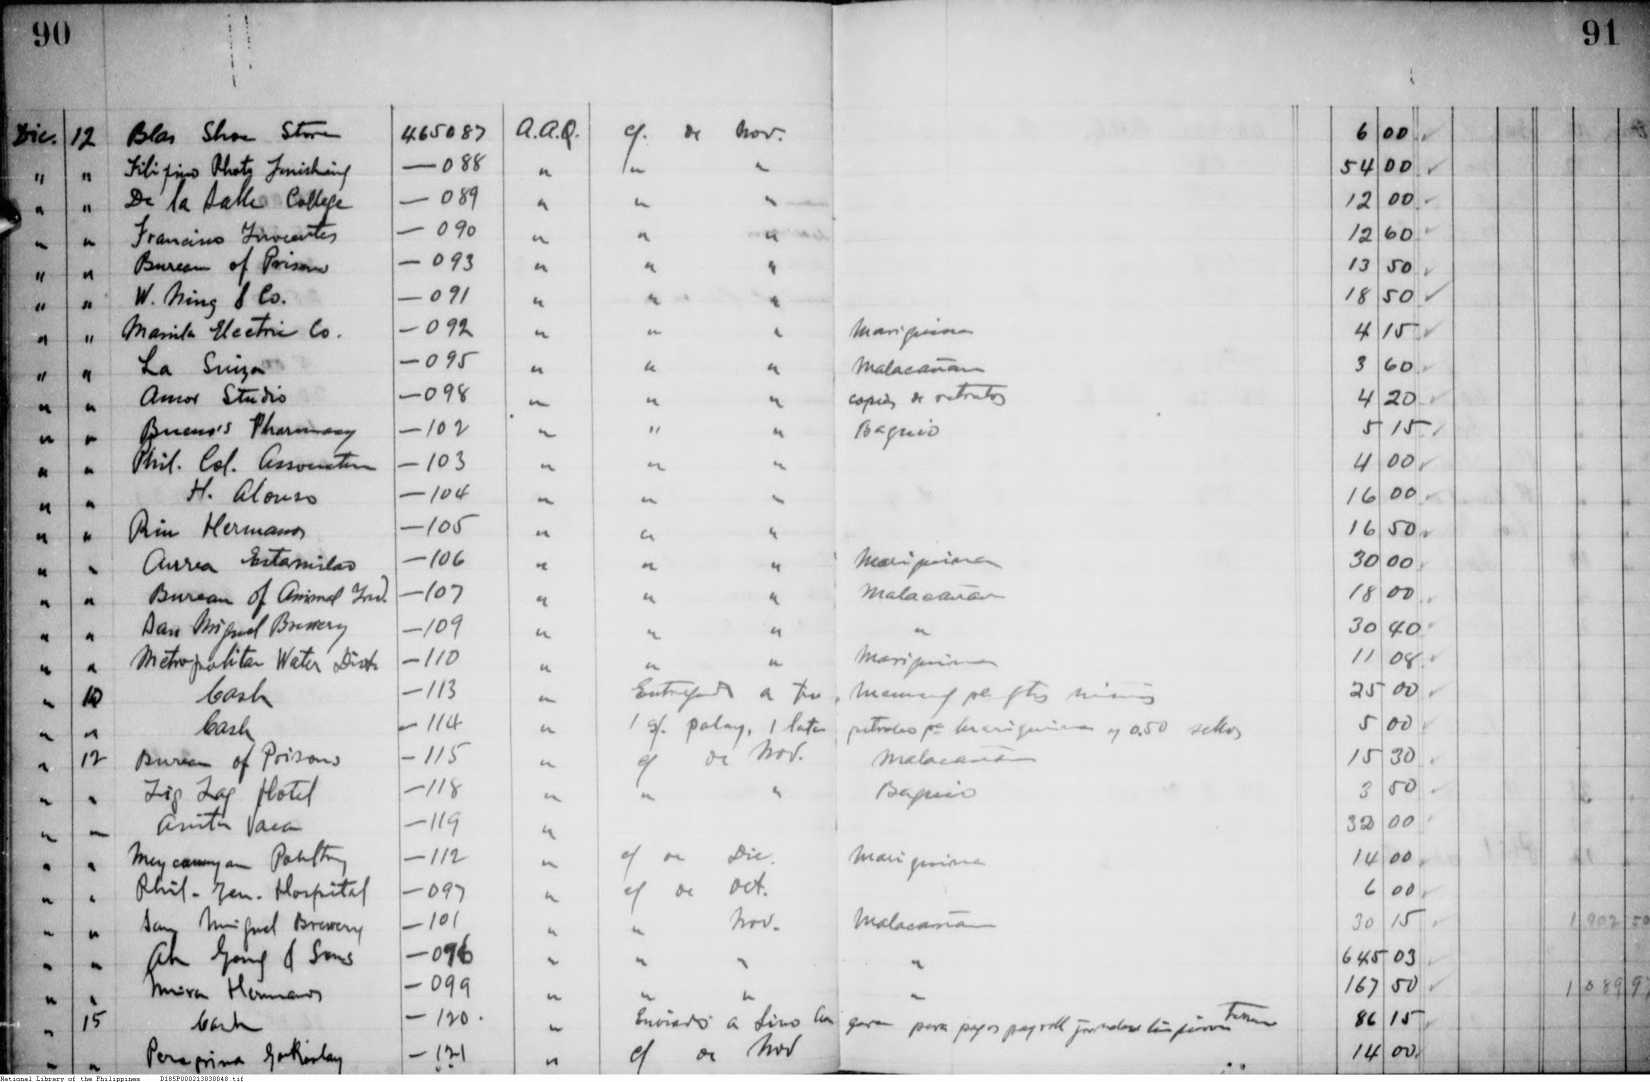 90 91
Dic. 12 Blas Shoe Store 465087 A.A.Q. cf. de Nov. 6 00 ✓
" " Filipino Photo Finishing — 088 " " " 54 00 ✓
" " De la Salle College — 089 " " " 12 00 ✓
" " Francisco — 090 " " " 12 60 ✓
" " Bureau of Prisons — 093 " " " 13 50 ✓
" " W. Ning & Co. — 091 " " " 18 50 ✓
" " Manila Electric Co. — 092 " " " Mariquina 4 15 ✓
" " La Suiza — 095 " " " Malacañan 3 60 ✓
" " Amor Studio — 098 " " " copias de retratos 4 20 ✓
" " Bueno's Pharmacy — 102 " " " Baguio 5 15 ✓
" " Phil. Col. Association — 103 " " " 4 00 ✓
" " H. Alonso — 104 " " " 16 00 ✓
" " Riu Hermanos — 105 " " " 16 50 ✓
" " Aurea Estanislao — 106 " " " Mariquina 30 00 ✓
" " Bureau of Animal Ind. — 107 " " " Malacañan 18 00 ✓
" " San Miguel Brewery — 109 " " " " 30 40 ✓
" " Metropolitan Water Dist. — 110 " " " Mariquina 11 08 ✓
" 10 Cash — 113 " Entregado a 25 00 ✓
" " Cash — 114 " 1 palay, 1 lata petroleo pa Mariquina y 0.50 sellos 5 00 ✓
" 12 Bureau of Prisons — 115 " cf de Nov. Malacañan 15 30 ✓
" " Zig Zag Hotel — 118 " " " Baguio 3 50 ✓
" " Anita Vaca — 119 " 32 00 ✓
" " Meycauayan Poultry — 112 " cf de Dic. Mariquina 14 00 ✓
" " Phil. Gen. Hospital — 097 " cf de Oct. 6 00 ✓
" " San Miguel Brewery — 101 " " Nov. Malacañan 30 15 ✓ 1,902 50
" " Ah Gong & Sons — 096 " " " " 645 03 ✓
" " Mira Hermanos — 099 " " " " 167 50 ✓ 1 089 97
" 15 Cash — 120 " Enviado a Lino para pagos payroll 86 15 ✓
" " Peregrina — 121 " cf de Nov 14 00
National Library of the Philippines D185P000213030048.tif